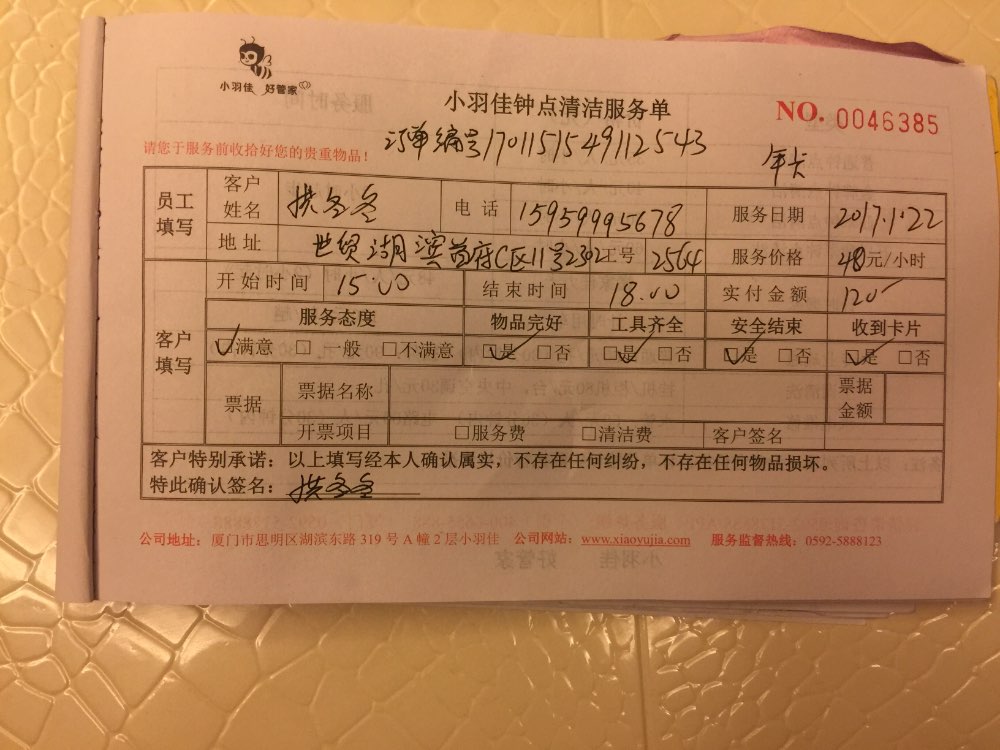 小羽佳 好管家
小羽佳钟点清洁服务单
NO. 0046385
请您于服务前收拾好您的贵重物品！
订单编号1701151549112543
年卡
员工填写
客户姓名
电话 15959995678
服务日期 2017.1.22
地址 世贸湖滨首府C区11号2302
工号 2564
服务价格 40元/小时
开始时间 15:00
结束时间 18:00
实付金额 120
客户填写
服务态度 物品完好 工具齐全 安全结束 收到卡片
☑满意 □一般 □不满意 ☑是 □否 ☑是 □否 ☑是 □否 ☑是 □否
票据
票据名称
票据金额
开票项目 □服务费 □清洁费 客户签名
客户特别承诺：以上填写经本人确认属实，不存在任何纠纷，不存在任何物品损坏。
特此确认签名：
公司地址：厦门市思明区湖滨东路 319 号 A 幢 2 层小羽佳 公司网站：www.xiaoyujia.com 服务监督热线：0592-5888123